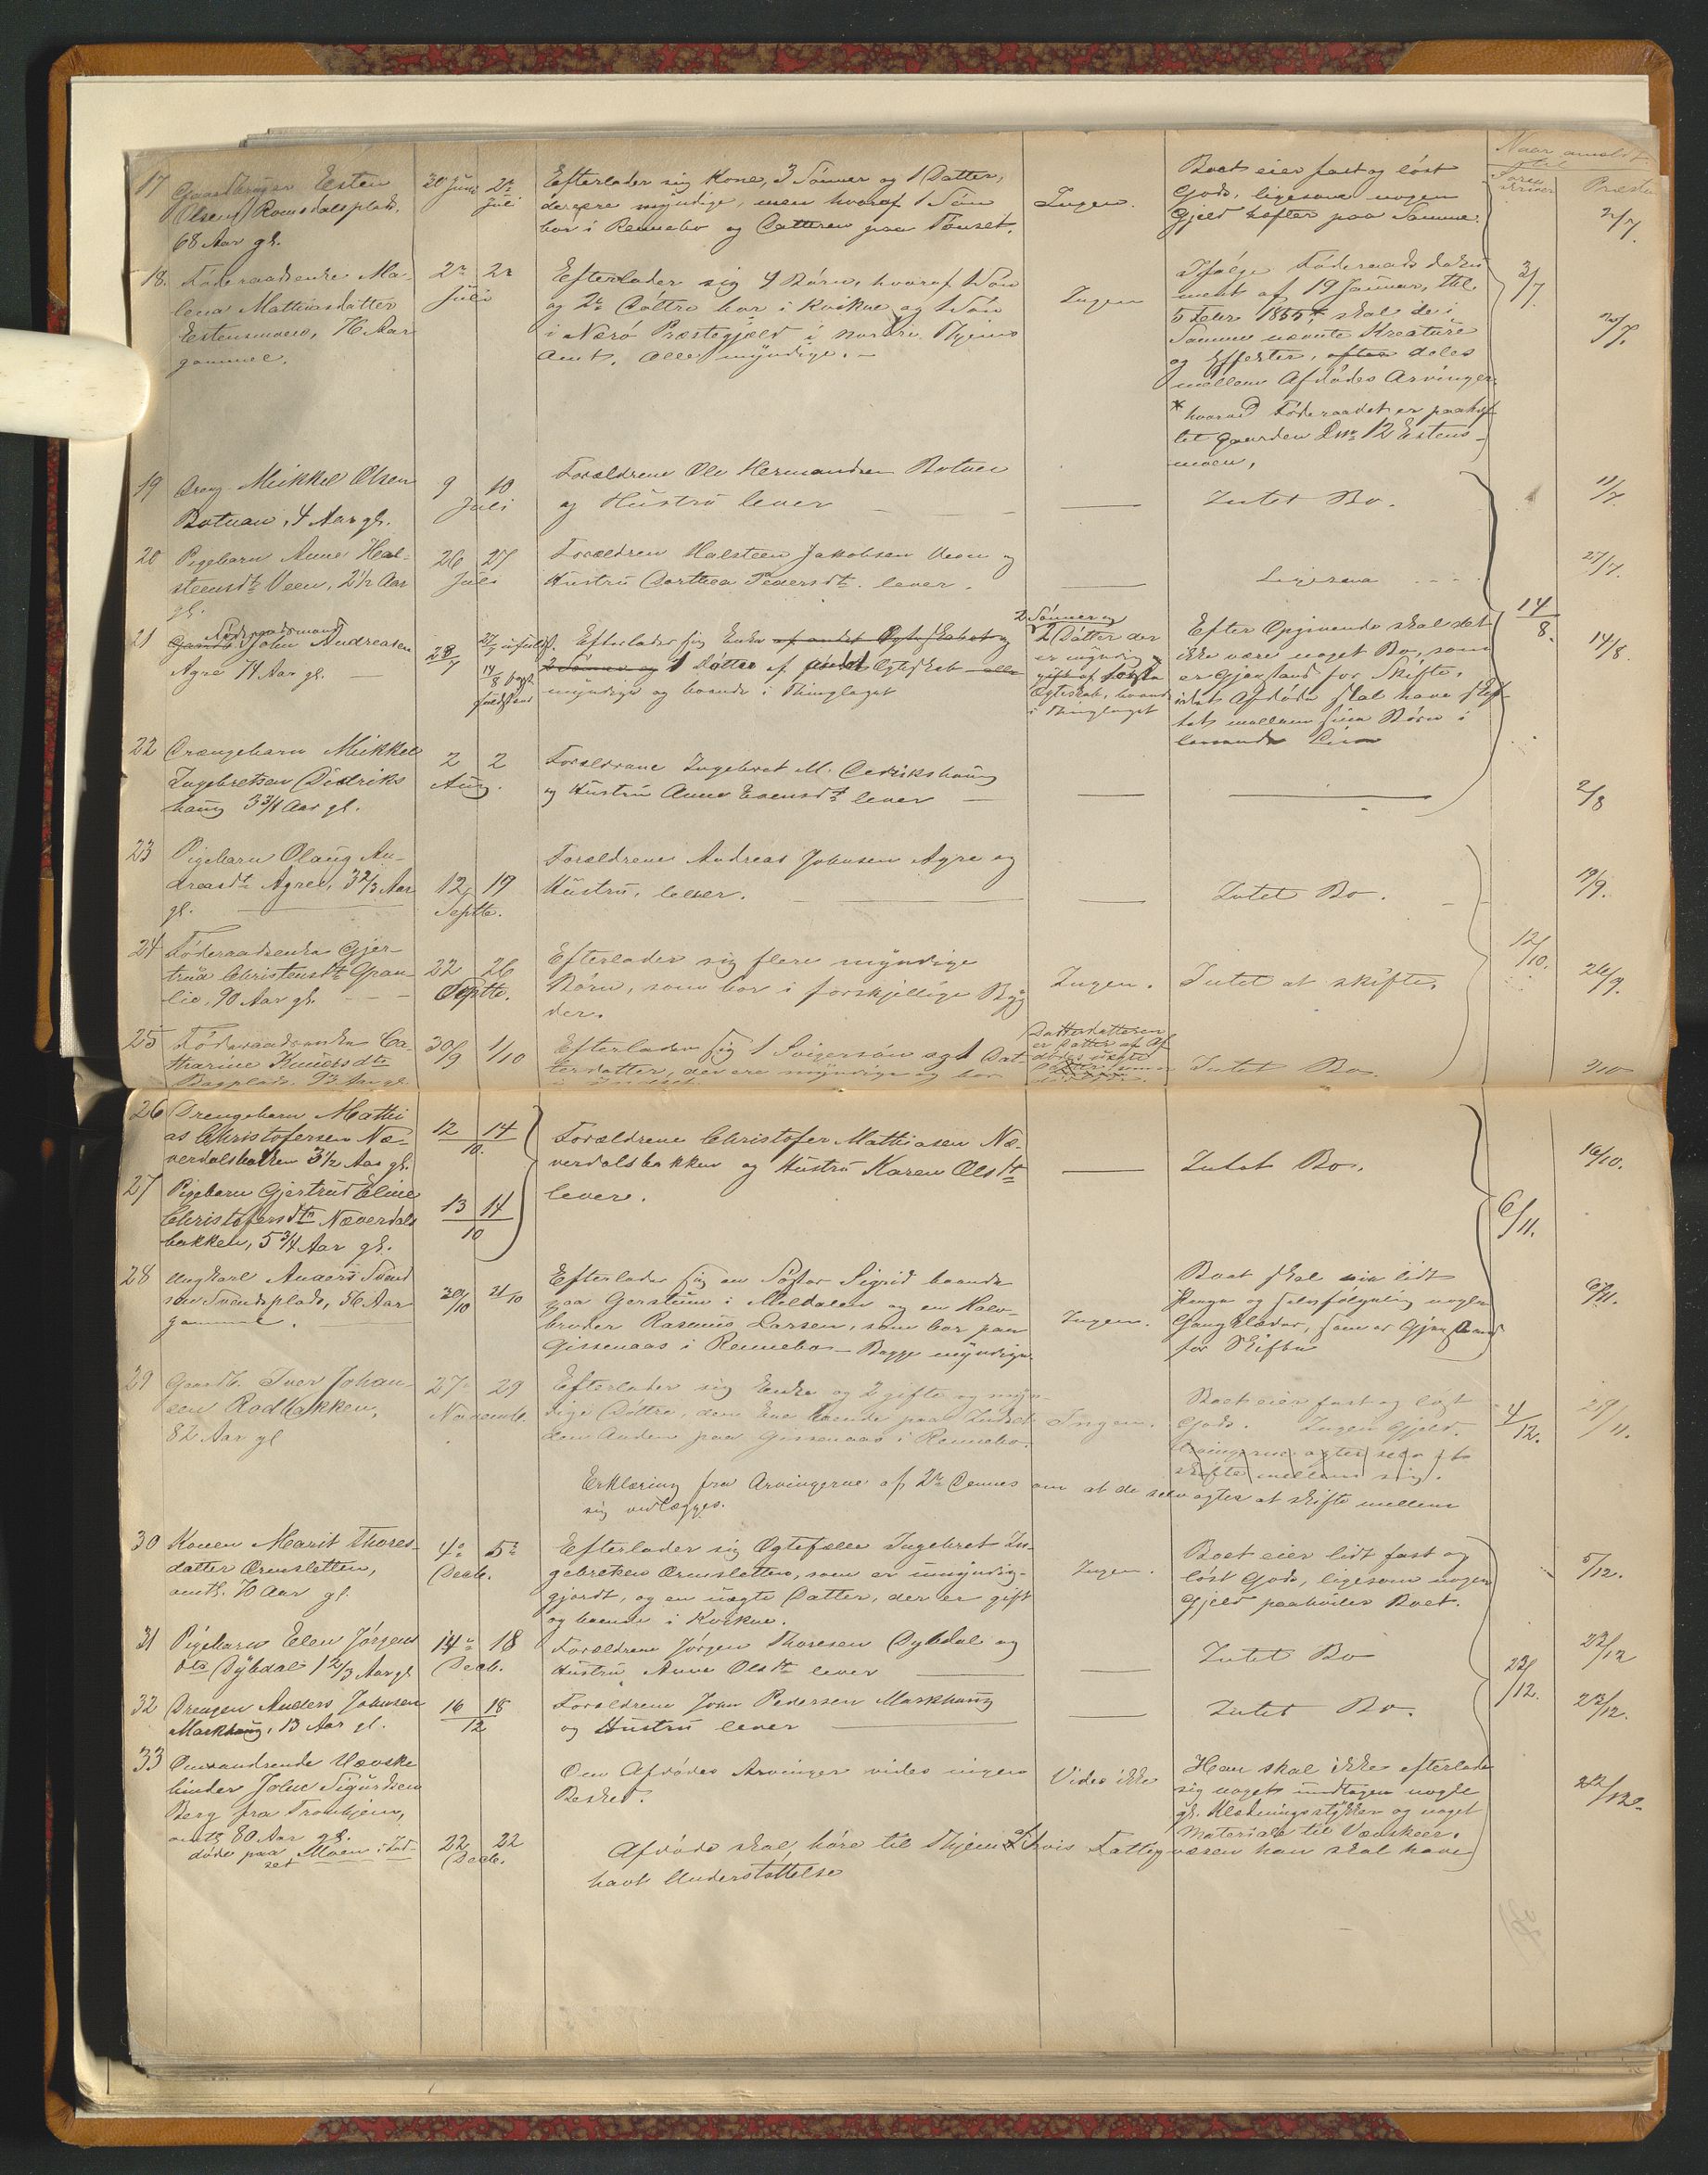 Naar anmeldt
til
Soren-
skriver Præsten
17 Gaardbruger Esten
Olsen Romsdalsplads,
68 Aar gl.
30 Juni 2n Juli
Efterlader sig Kone, 3 Sønner og 1 Datter,
der ere myndige, men hvoraf 1 Søn
bor i Rennebo og Datteren paa Tønset.
Ingen.
Boet eier fast og løst
Gods, ligesom nogen
Gjeld hefter paa Samme.
2/7.
18. Føderaadsenke Ma-
lena Mathiasdatter
Estensmoen, 76 Aar
gammel.
2n 2n
Juli
Efterlader sig 4 Børn, hvoraf 1 Søn
og 2n Døttre bor i Kvikne og 1 Søn
i Nærø Præstegjeld i Nordre Thjems
Amt. Alle myndige. —
Ingen
Ifølge Føderaadsdoku
ment af 19 Januar, thl.
5 Febr 1855* skal de i
Samme nævnte Kreature
og Effekter, deles
mellem Afdødes Arvinger.
* hvorved Føderaadet er paahef
tet Gaarden Lno 12 Estens-
moen.
3/7.
19 Dreng Mikkel Olsen
Botnan, 4 Aar gl.
9 10
Juli
Forældrene Ole Hermandsen Botnen
og Hustru lever
Intet Bo.
11/7
20 Pigebarn Anne Hal-
steensdtr Veen, 2 1/2 Aar
gl.
26 27
Juli
Forældren Halsteen Jakobsen Veen og
Hustru Dorthea Pedersdtr. lever.
Ligesaa
27/7.
21 Føderaadsmand
John Andreasen
Agre 74 Aar gl.
28/7
Efterlader sig Enke af andet Egteskabet og
2 Sønner og 1 Datter af andet Egteskab alle
myndige og boende i Thinglaget
2 Sønner og
1 Datter der
er myndig
gift af første
Egteskab, boende
i Thinglaget
Efter Opgivende skal det
ikke være noget Bo, som
er Gjenstand for Skifte,
idet Afdøde skal have skif-
tet mellem sine Børn i
levende Live
14/8.
14/8.
22 Drengebarn Mikkel
Ingebretsen Didriks
haug 3 3/4 Aar gl.
2 2
Aug.
Forældrene Ingebret M. Dedrikshaug
og Hustru Anne Evensdtr lever —
2/8
23 Pigebarn Olaug An-
dreasdtr Agre, 3 2/3 Aar
gl.
12 19
Septbr.
Forældrene Andreas Johnsen Agre og
Hustru, lever.
Intet Bo.
19/9.
24 Føderaadsenke Gjer-
trud Christensdtr Gran-
lie, 90 Aar gl.
22 26
Septbr.
Efterlader sig flere myndige
Børn, som bor i forskjellige Byg
der.
Ingen. Intet at skifte.
12/10.
26/9.
25 Føderaadsenke Ca-
tharine Knudsdtr
Bagplads, 93 Aar gl.
30/9 1/10
Efterlader sig 1 Svigersøn og 1 Dat
terdatter, der ere myndige og bor
Datterdatteren
er Datter af Af
dødes uægte
Intet Bo.
26 Drengebarn Mathi
as Christofersen Næ-
verdalsbakken 3 1/2 Aar gl.
12 14
10.
Forældrene Christofer Mathiasen Næ-
verdalsbakken og Hustru Karen Olsdtr
lever.
Intet Bo.
16/10.
27 Pigebarn Gjertrud Eline
Christofersdtr Næverdals
bakken, 5 3/4 Aar gl.
13 14
10
6/11.
28 Ungkarl Anders Svend
sen Svendsplads, 36 Aar
gammel.
20/10 21/10
Efterlader sig en Søster Sigrid boende
paa Gerstum i Meldalen og en Halv-
broder Rasmus Larsen, som bor paa
Gissenaas i Rennebo — Begge myndige.
Ingen.
Boet skal eie lidt
Penge og selvfølgelig nogle
Gangklæder, som er Gjenstand
for Skifte
6/11.
29 Gaardb. Iver Johan-
sen Rodbakken,
82 Aar gl
27 29
Novembr.
Efterlader sig Enke og 2 gifte og myn-
dige Døttre, den Ene boende paa Indset
den Anden paa Gissenaas i Rennebo.
Ingen.
Boet eier fast og løst
Gods. Ingen Gjeld.
Arvingerne agter selv at
skifte mellem sig.
4/12.
29/11.
Erklæring fra Arvingerne af 2n Dennes om at de selv agter at skifte mellem
sig vedlægges.
30 Konen Marit Thores-
datter Ormsletten,
omtr. 70 Aar gl.
4n 5n
Decb.
Efterlader sig Egtefælle Ingebret In-
gebretsen Ormsletten, som er umyndig-
gjordt, og en uægte Datter, der er gift
og boende i Kvikne.
Ingen.
Boet eier lidt fast og
løst Gods, ligesom nogen
Gjeld paahviler Boet.
5/12.
31 Pigebarn Elen Jørgens
dtr Dybdal 1 2/3 Aar gl
14n 18
Decb.
Forældrene Jørgen Thoresen Dybdal og
Hustru Anne Olsdtr lever
Intet Bo
22/12.
22/12
32 Drengen Anders Johnsen
Markhaug, 13 Aar gl.
16 18
12
Forældrene John Pedersen Markhaug
og Hustru lever
Intet Bo.
22/12.
33 Omvandrende Vævske
binder John Sigurdsen
Berg fra Tronhjem,
omtr 80 Aar gl.
døde paa Moen i Ind-
set
22 22
Decb.
Om Afdødes Arvinger vides ingen
Besked.
Vides ikke
Han skal ikke efterlade
sig noget undtagen nogle
gl. Klædningsstykker og noget
Materiale til Vævskeer.
22/12.
Afdøde skal høre til Thjem af hvis Fattigvæsen han skal have
havt Understøttelse